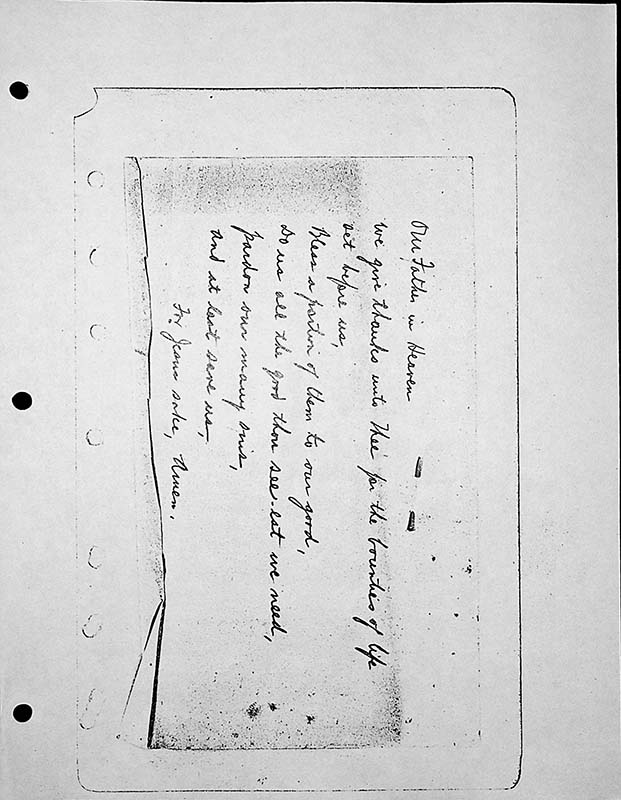 Our Father in Heaven
we give thanks unto Thee for the bounties of life
set before us,
Bless a portion of them to our good,
Do us all the good thou see-est we need,
pardon our many sins,
and at last save us,
For Jesus sake, Amen.